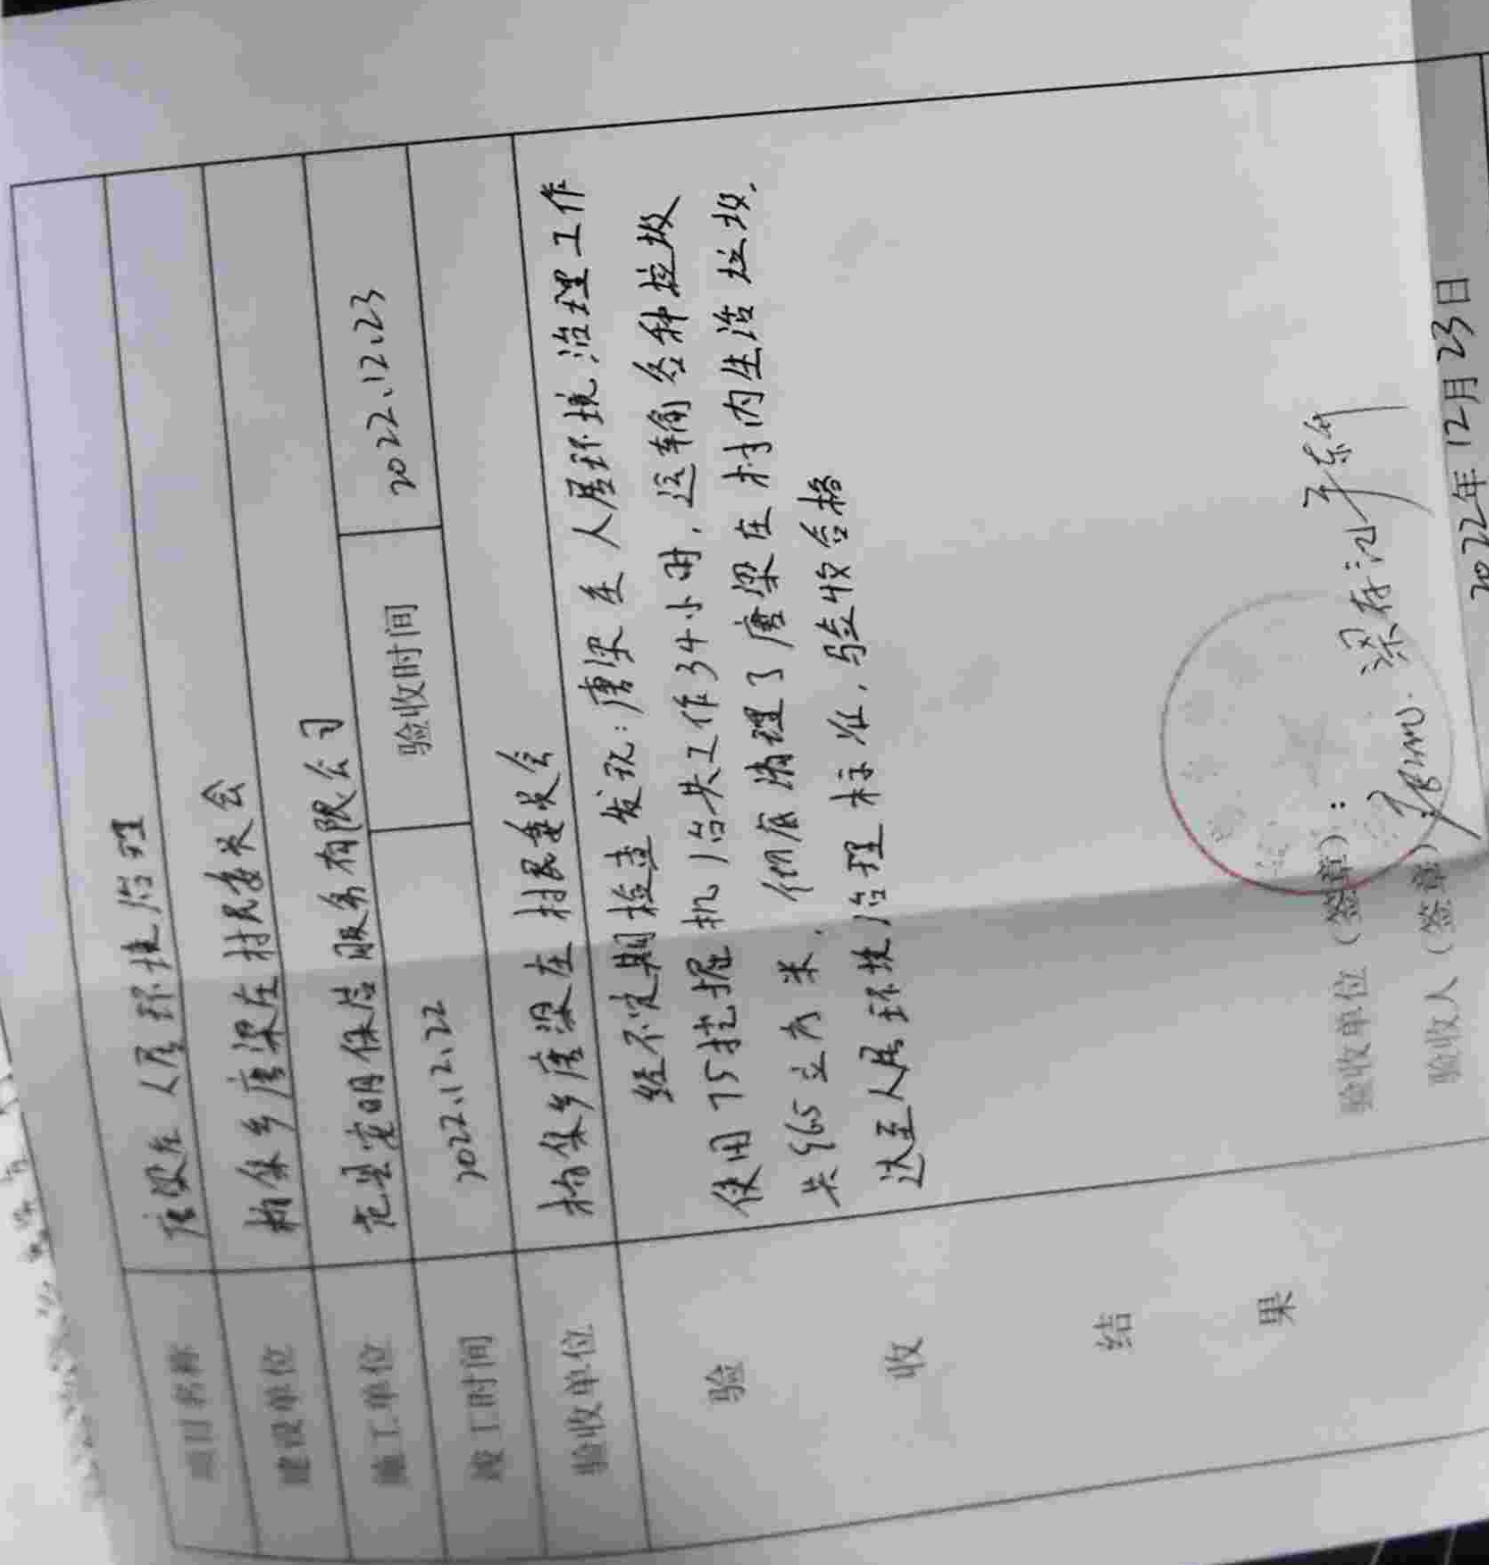 项目名称 唐梁庄人居环境治理
建设单位 杨集乡唐梁庄村民委员会
施工单位 范县宏明保洁服务有限公司
竣工时间 2022.12.22 验收时间 2022.12.23
验收单位 杨集乡唐梁庄村民委员会
验收结果
经不定期检查发现:唐梁庄人居环境治理工作
使用75挖掘机1台共工作34小时,运输各种垃圾
共965立方米,彻底清理了唐梁庄村内生活垃圾,
达至人居环境治理标准,验收合格
验收单位(签章):
验收人(签章):
2022年12月23日